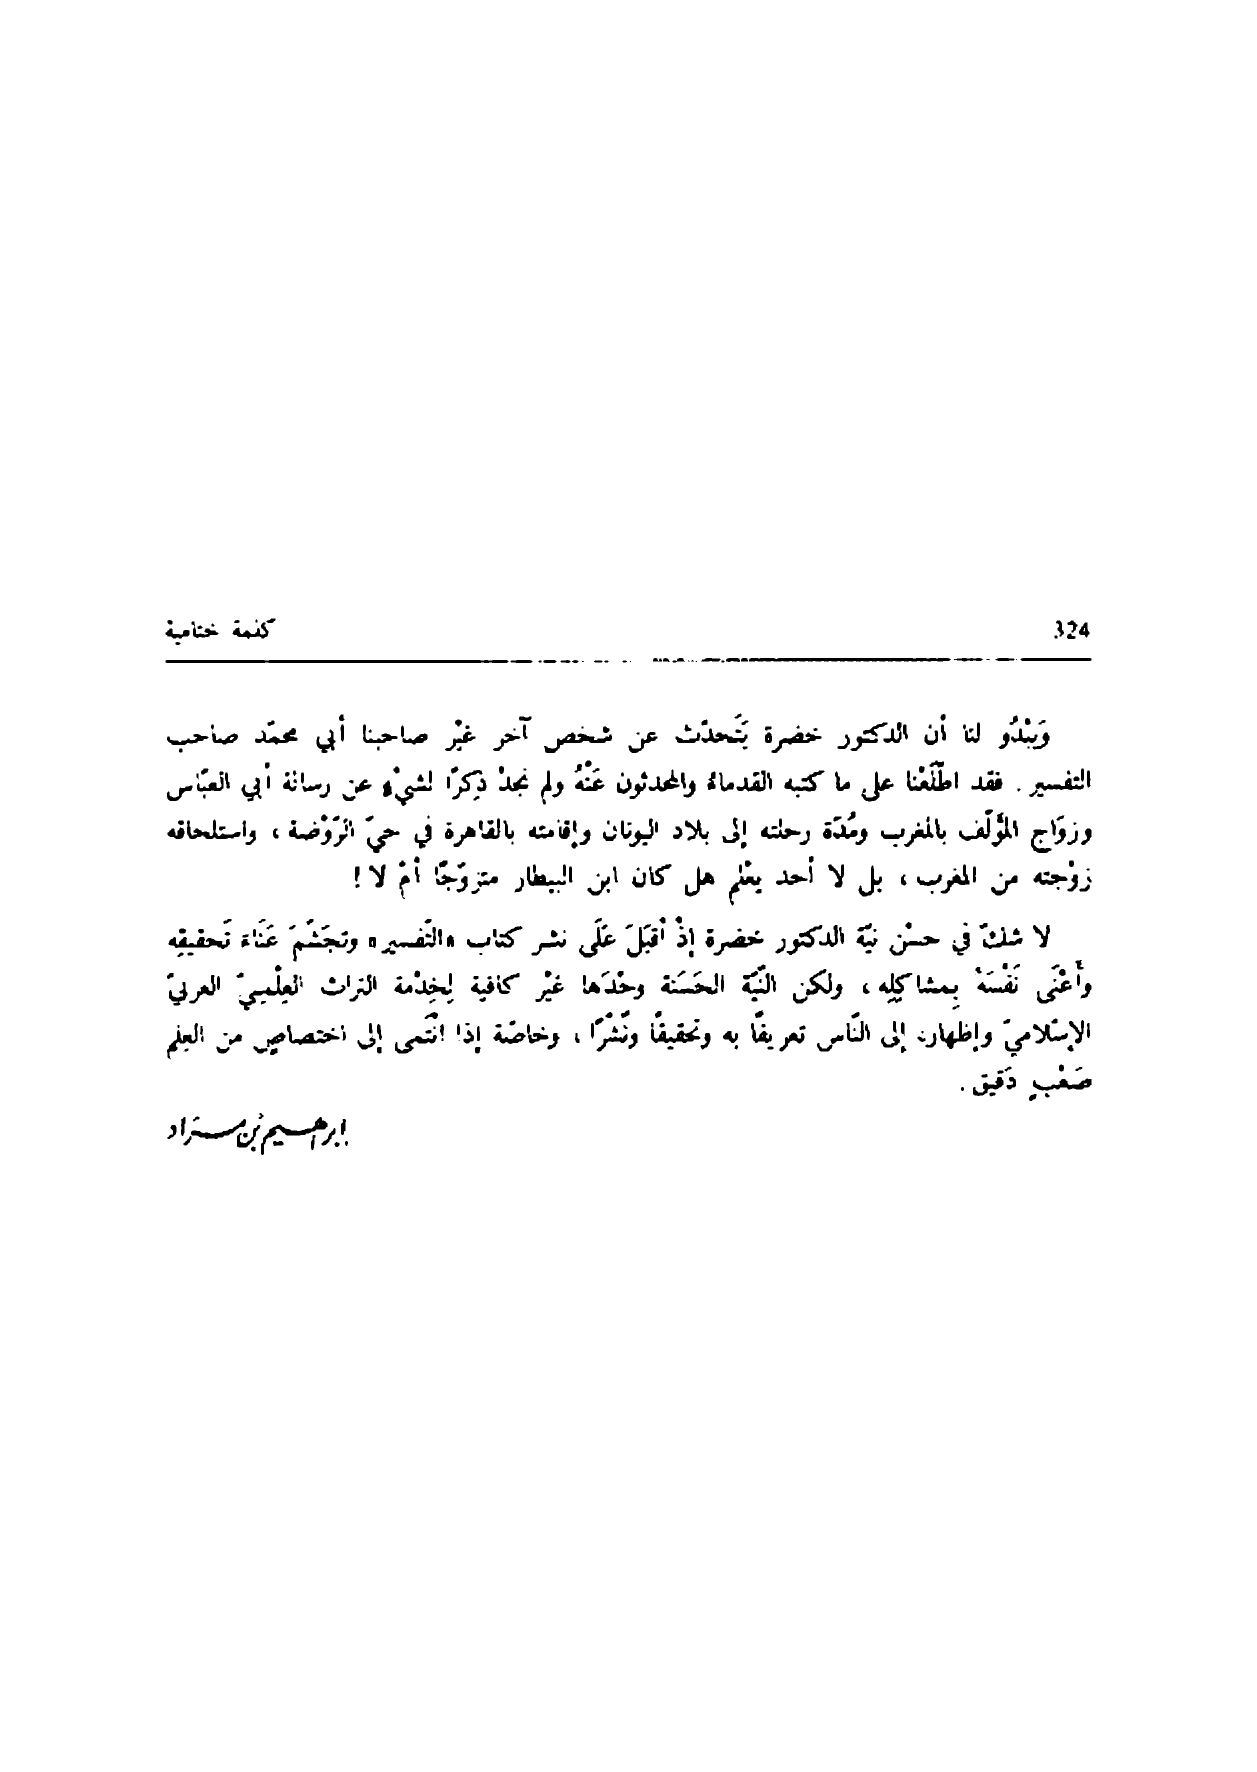 324
كلمة ختامية
وَيَبْدُو لنا أن الدكتور خضرة يَتَحدّث عن شخص آخر غيْر صاحبنا أبي محمّد صاحب
التفسير . فقد اطّلَعْنا على ما كتبه القدماءُ والمحدثون عَنْهُ ولم نجدْ ذِكرًا لشيْءٍ عن رسالة أبي العبّاس
وزوَاج المؤَلّف بالمغرب ومُدّة رحلته إلى بلاد اليونان وإقامته بالقاهرة في حيّ الرّوْضة ، واستلحاقه
زوْجته من المغرب ، بل لا أحد يعْلم هل كان ابن البيطار متزوّجًا أمْ لا !
لا شكّ في حسْن نيّة الدكتور خضرة إذْ أقبَلَ عَلَى نشر كتاب «التّفسير» وتجَشّمَ عَنَاءَ تَحقيقِه
وأَعْنَى نَفْسَهُ بِمشاكِلِه ، ولكن النّيّة الحَسَنة وحْدَها غيْر كافية لِخِدْمة التراث العِلْمِيّ العربيّ
الإسْلاميّ وإظهاره إلى النّاس تعريفًا به وتحقيقًا ونَشْرًا ، وخاصّة إذا انْتَمى إلى اختصاصٍ من العِلم
صَعْبٍ دَقيق .
إبراهيم بن مراد